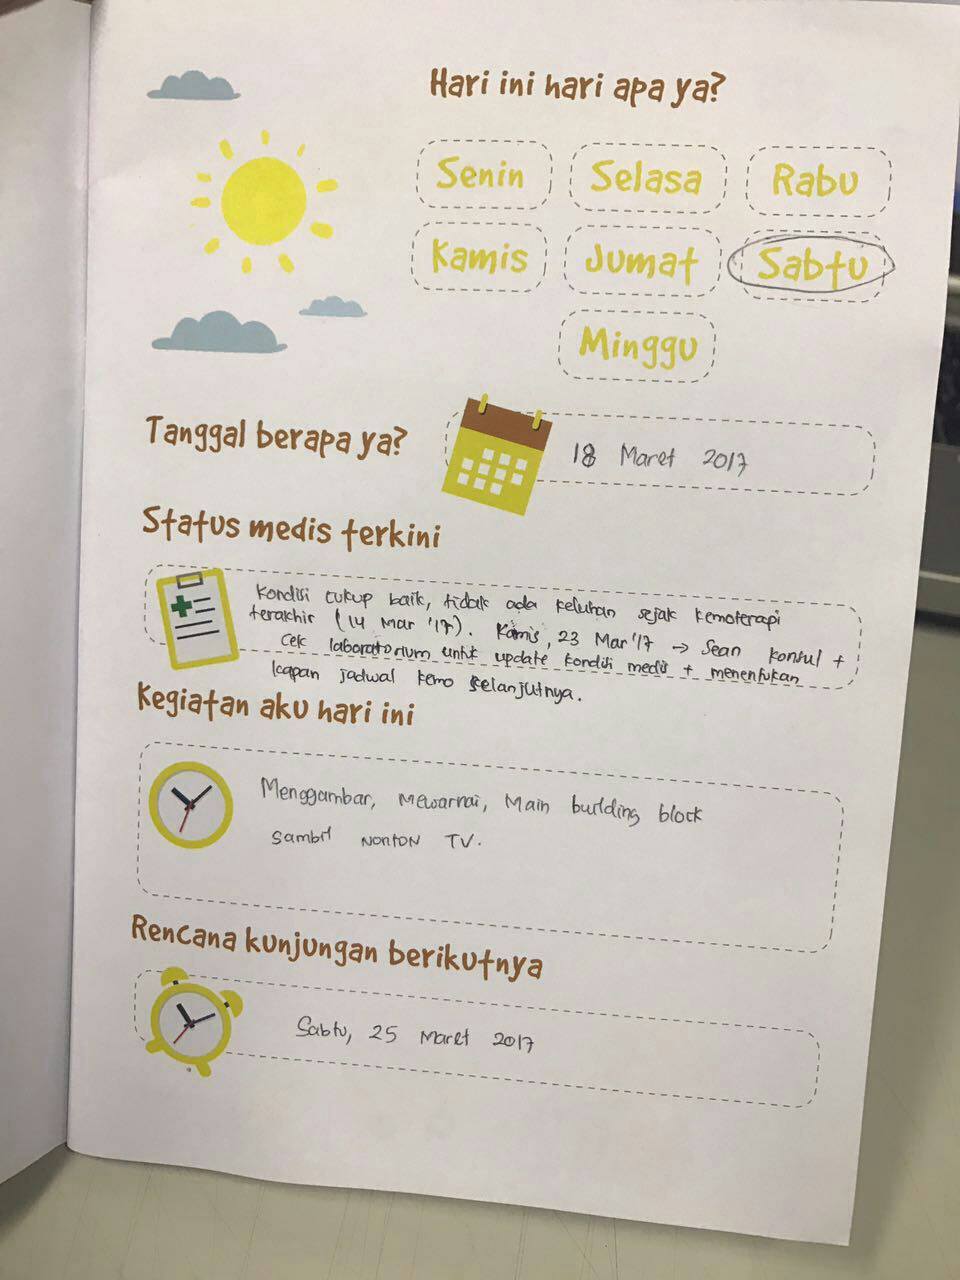 Hari ini hari apa ya?
Senin Selasa Rabu
Kamis Jumat Sabtu
Minggu
Tanggal berapa ya?
18 Maret 2017
Status medis terkini
Kondisi cukup baik, tidak ada keluhan sejak kemoterapi
terakhir (14 Mar '17). Kamis, 23 Mar '17 → Sean konsul +
cek laboratorium untuk update kondisi medis + menentukan
kapan jadwal kemo selanjutnya.
Kegiatan aku hari ini
Menggambar, Mewarnai, Main building block
sambil NONTON TV.
Rencana kunjungan berikutnya
Sabtu, 25 Maret 2017